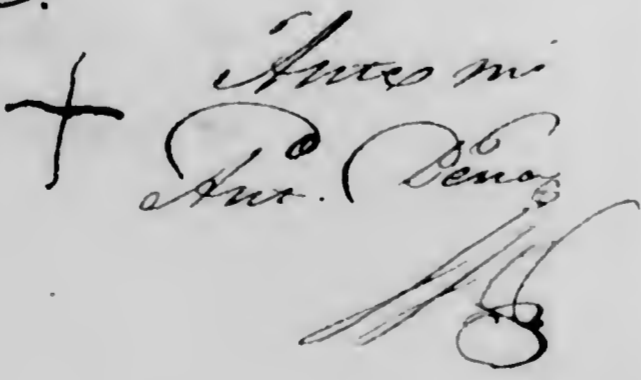 Ante mi
Anto. Pena